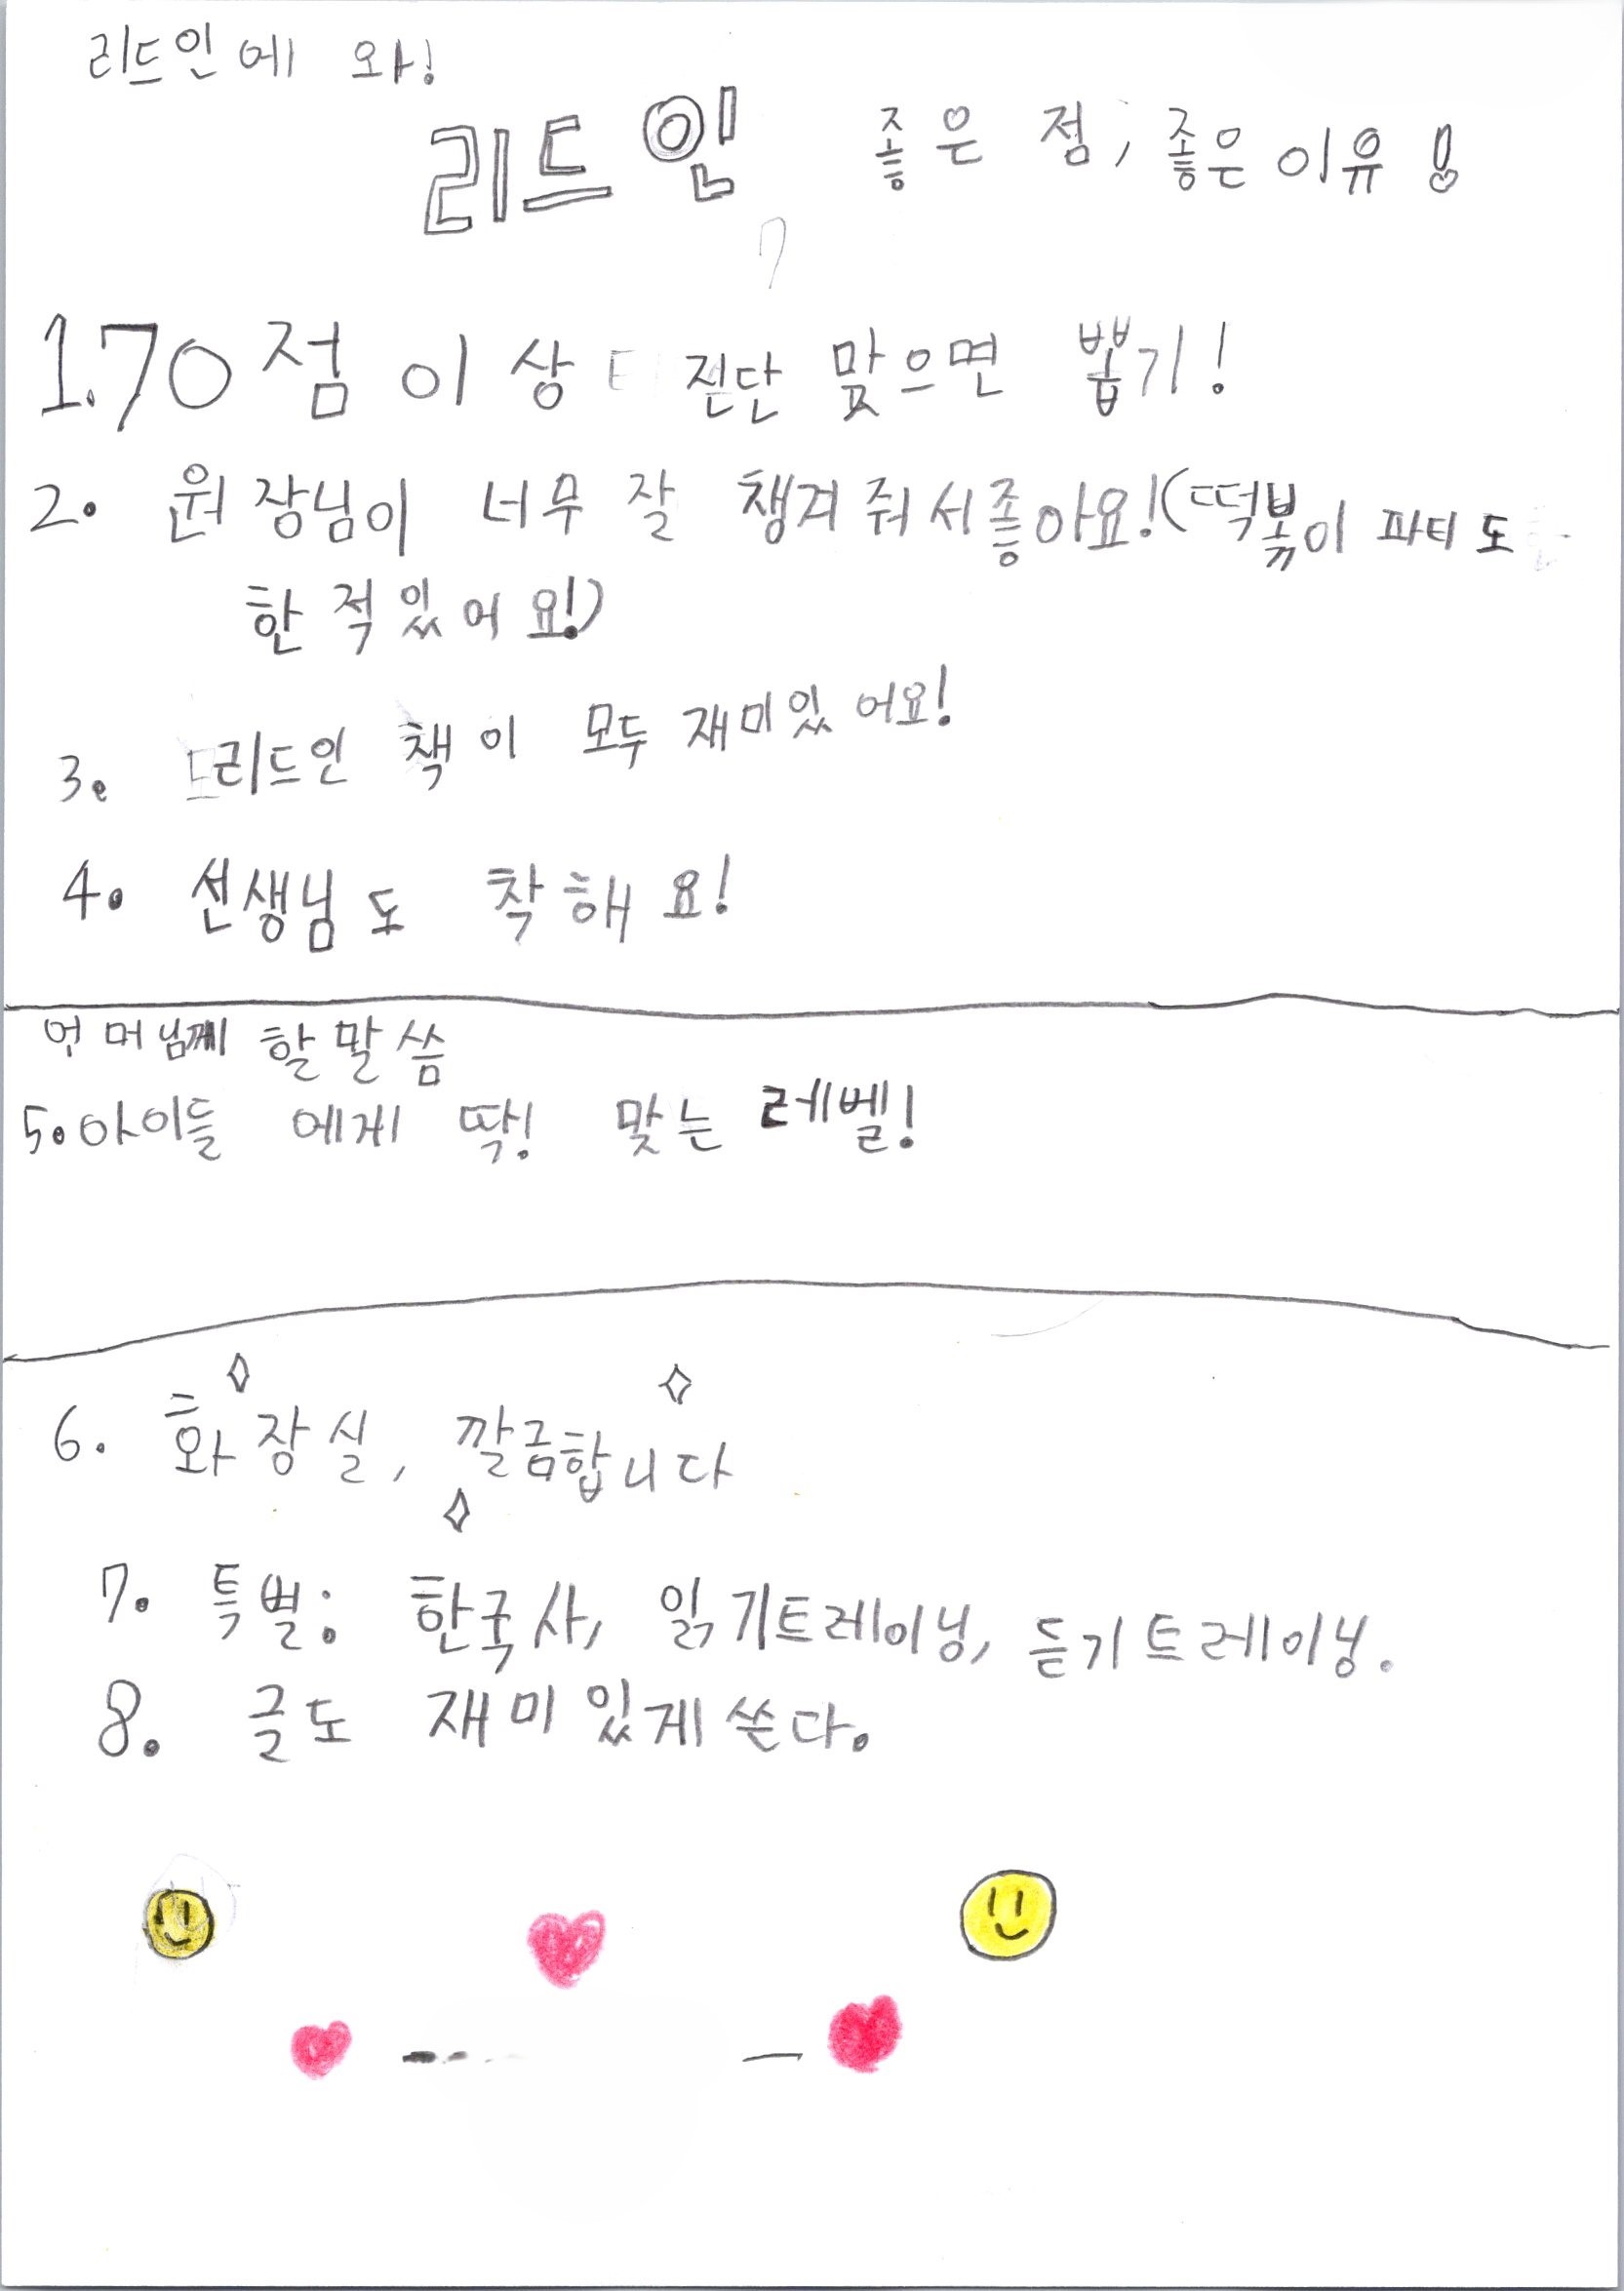 리드인에 와!
리드인 좋은 점, 좋은 이유!
1. 70점 이상 진단 맞으면 뽑기!
2. 원장님이 너무 잘 챙겨줘서 좋아요! (떡볶이 파티도
한 적 있어요!)
3. 리드인 책이 모두 재미있어요!
4. 선생님도 착해요!
어머님께 할 말씀
5. 아이들에게 딱! 맞는 레벨!
6. 화장실, 깔금합니다
7. 특별: 한국사, 읽기트레이닝, 듣기트레이닝.
8. 글도 재미있게 쓴다.